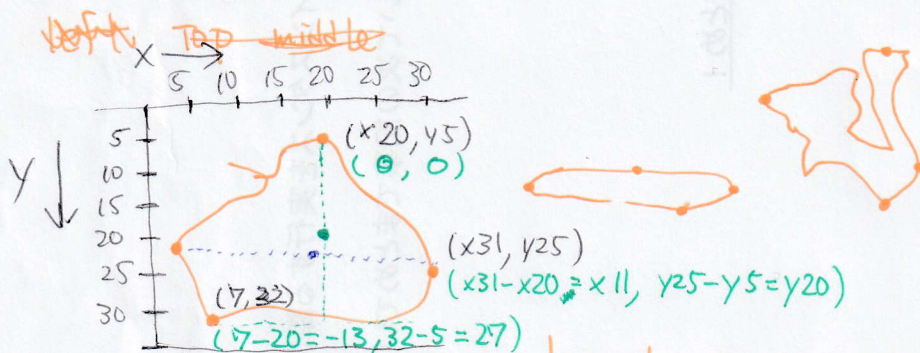 Top middle
X
5 10 15 20 25 30
Y
5
10
15
20
25
30
(x20, y5)
(0, 0)
(x31, y25)
(x31-x20=x11, y25-y5=y20)
(7, 32)
(7-20=-13, 32-5=27)